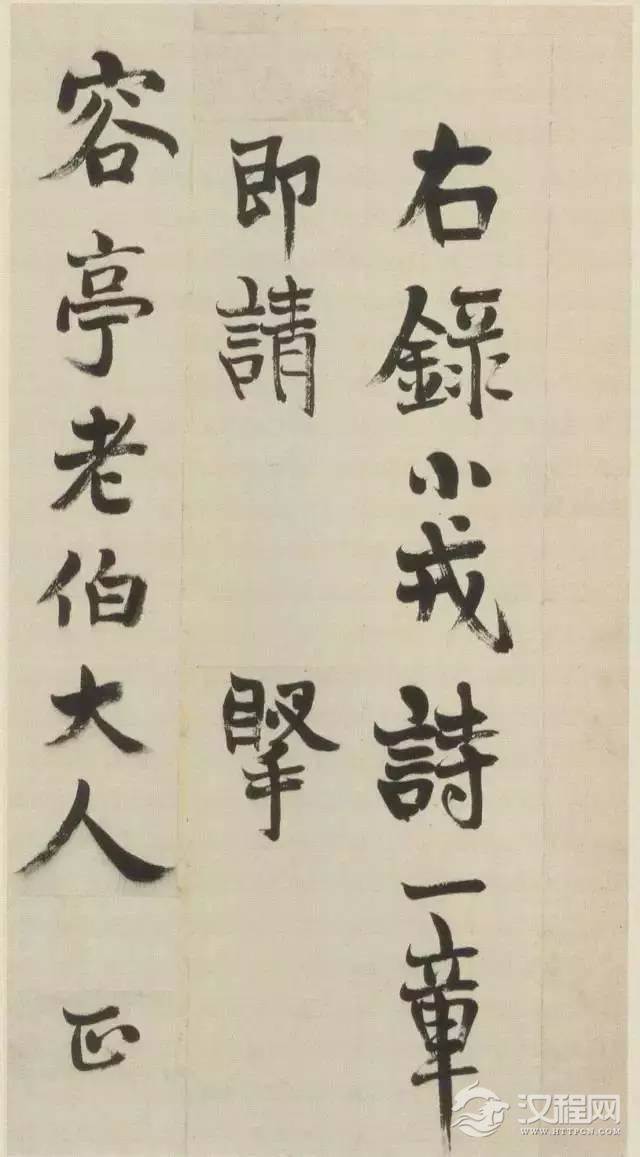 右錄小戎詩一章
即請 掔
容亭老伯大人 正
汉程网
WWW.HTTPCN.COM